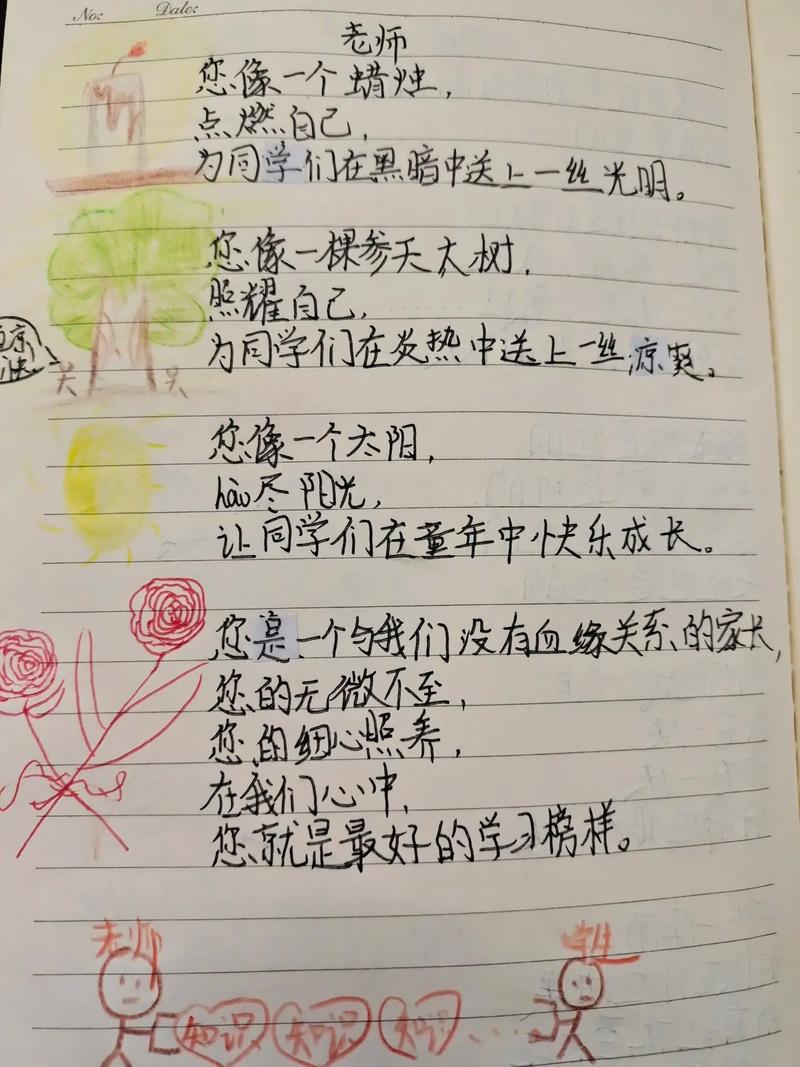 No: Date:
老师
您像一个蜡烛，
点燃自己，
为同学们在黑暗中送上一丝光明。
您像一棵参天太树，
照耀自己，
为同学们在炎热中送上一丝凉爽。
您像一个太阳，
hào尽阳光，
让同学们在童年中快乐成长。
您是一个与我们没有血缘关系的家长，
您的无微不至，
您的细心照养，
在我们心中，
您就是最好的学习榜样。
老师 学生
知识 知识 知识 ...